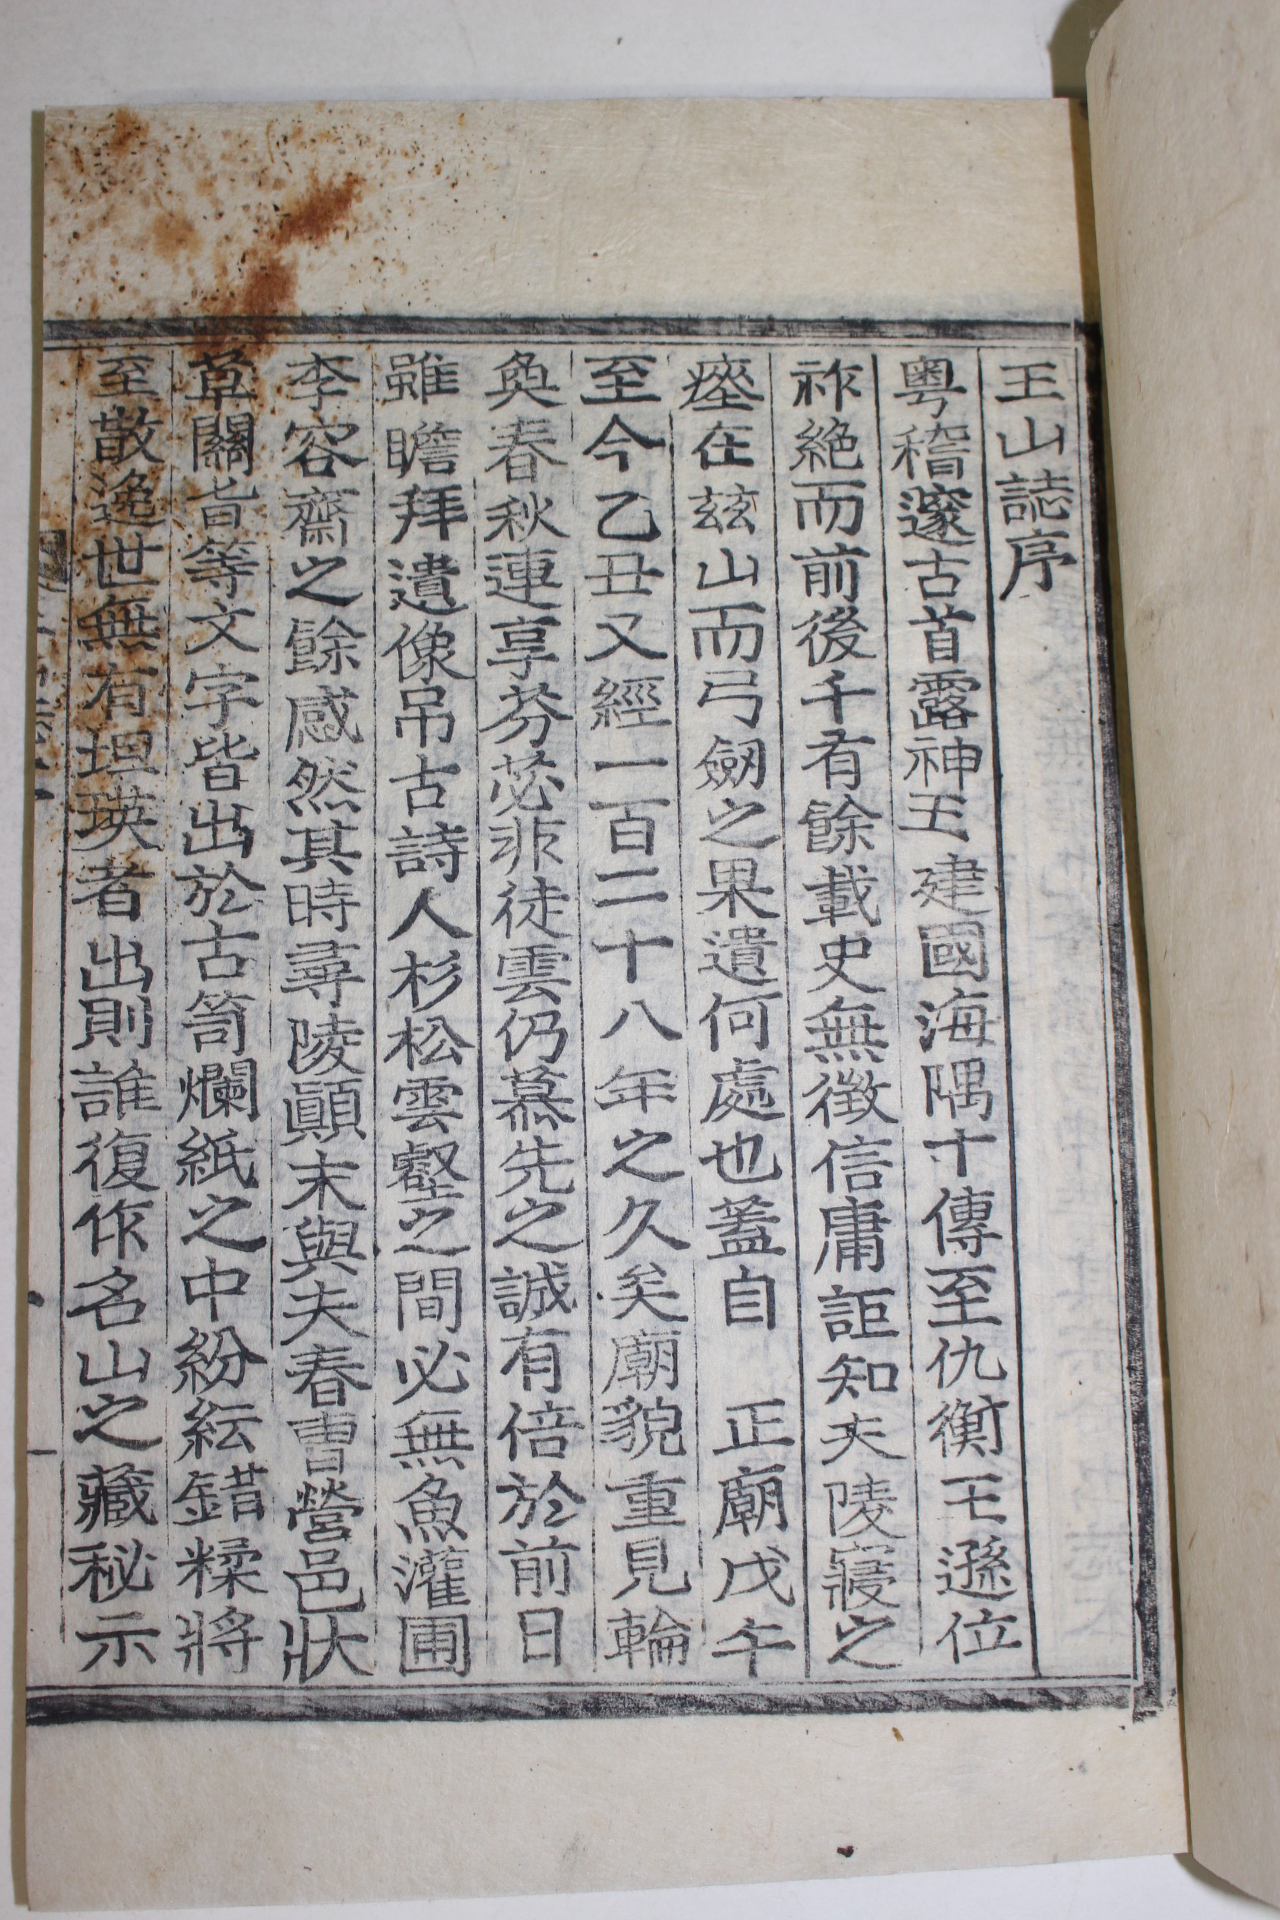 王山誌序
粤稽邃古首露神王建國海隅十傳至仇衡王遜位
祚絶而前後千有餘載史無徵信庸詎知夫陵寢之
瘞在玆山而弓劒之果遺何處也盖自 正廟戊午
至今乙丑又經一百二十八年之久矣廟貌重見輪
奐春秋連享芬苾非徒雲仍慕先之誠有倍於前日
雖瞻拜遺像吊古詩人杉松雲壑之間必無魚灌圃
李容齋之餘感然其時尋陵顚末與夫春曹營邑狀
草關旨等文字皆出於古笥爛紙之中紛紜錯糅將
至散逸世無有坦瑛者出則誰復作名山之藏秘示